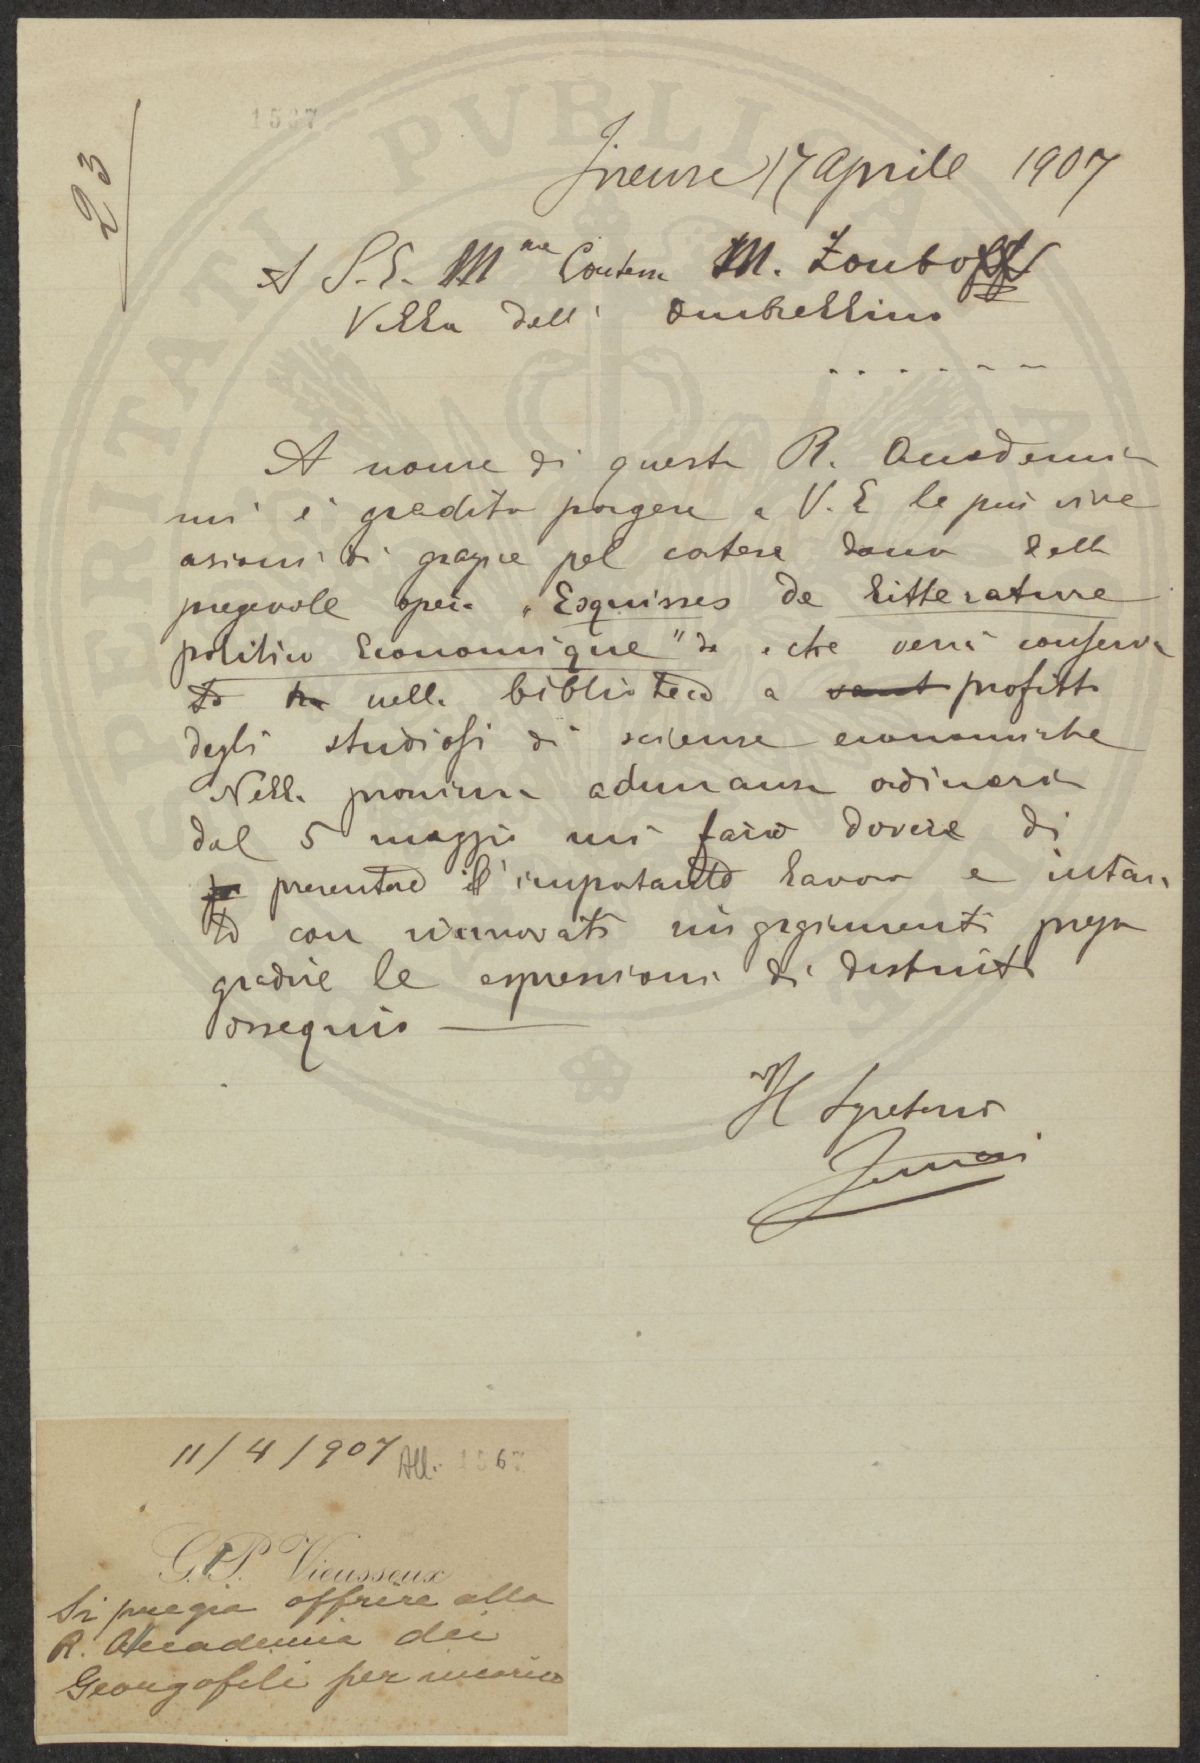 1567
23
Firenze 17 Aprile 1907
A S. E. Mme Contessa M. Zouboff
Villa dell' Ombrellino
A nome di questa R. Accademia
mi è gradito porgere a V. E. le più vive
azioni di grazie pel cortese dono della
pregevole opera "Esquisses de Litterature
politico Economique" che verrà conserva
to nella biblioteca a profitto
degli studiosi di scienze economiche
Nella prossima adunanza ordinaria
del 5 maggio mi farò dovere di
presentare l'importante lavoro e intan
to con rinnovati ringraziamenti prego
gradire le espressioni di distinto
ossequio
Il Segretario
11/4/907 All. 1567
G. P. Vieusseux
Si pregia offrire alla
R. Accademia dei
Georgofili per incarico
SPERITATI PVBLICAE